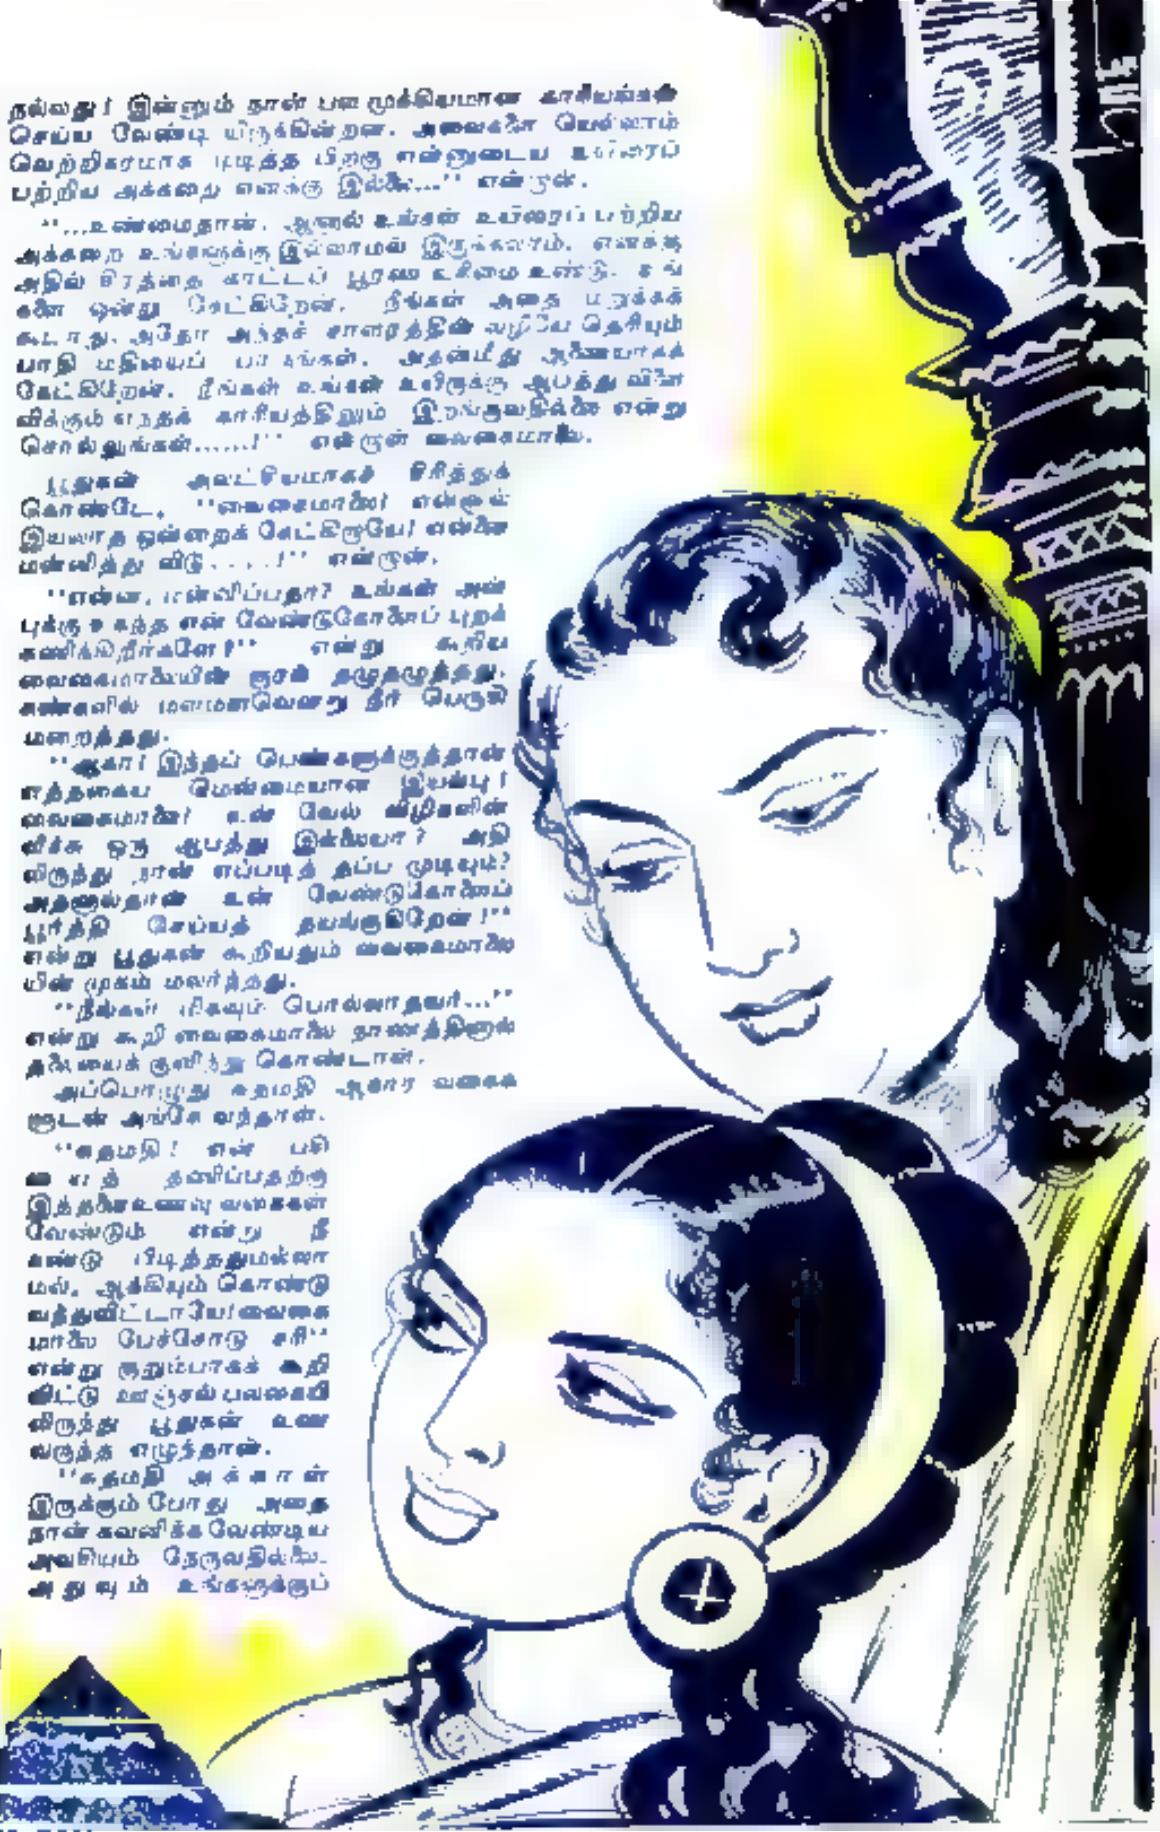 நல்லது! இன்னும் நான் பல முக்கியமான காரியங்கள்
செய்ய வேண்டி யிருக்கின்றன. அவைகளை யெல்லாம்
வெற்றிகரமாக முடித்த பிறகு என்னுடைய உயிரைப்
பற்றிய அக்கறை எனக்கு இல்லை...'' என்றான்.
''...உண்மைதான். ஆனால் உங்கள் உயிரைப் பற்றிய
அக்கறை உங்களுக்கு இல்லாமல் இருக்கலாம். எனக்கு
அதில் சிரத்தை காட்டப் பூரண உரிமை உண்டு. உங்
களை ஒன்று கேட்கிறேன். நீங்கள் அதை மறுக்கக்
கூடாது. அதோ அந்தச் சாளரத்தின் வழியே தெரியும்
பாதி மதியைப் பாருங்கள். அதன்மீது ஆணையாகக்
கேட்கிறேன். நீங்கள் உங்கள் உயிருக்கு ஆபத்து விளை
விக்கும் எந்தக் காரியத்திலும் இறங்குவதில்லை என்று
சொல்லுங்கள்......!'' என்றாள் வைகைமாலை.
பூதுகன் அலட்சியமாகச் சிரித்துக்
கொண்டே, ''வைகைமாலை! என்னால்
இயலாத ஒன்றைக் கேட்கிறாயே! என்னை
மன்னித்து விடு.....!'' என்றான்.
''என்ன, மன்னிப்பதா? உங்கள் அன்
புக்கு உகந்த என் வேண்டுகோளைப் புறக்
கணிக்கிறீர்களே?'' என்று கூறிய
வைகைமாலையின் குரல் தழுதழுத்தது.
கண்களில் மளமளவென்று நீர் பெருகி
மறைத்தது.
''ஆகா! இந்தப் பெண்களுக்குத்தான்
எத்தகைய மென்மையான இயல்பு!
வைகைமாலை! உன் வேல் விழிகளின்
வீச்சு ஒரு ஆபத்து இல்லையா? அதி
லிருந்து நான் எப்படித் தப்ப முடியும்?
அதனால்தான் உன் வேண்டுகோளைப்
பூர்த்தி செய்யத் தயங்குகிறேன்!''
என்று பூதுகன் கூறியதும் வைகைமாலை
யின் முகம் மலர்ந்தது.
''நீங்கள் மிகவும் பொல்லாதவர்...''
என்று கூறி வைகைமாலை நாணத்தினால்
தலையைக் குனிந்து கொண்டாள்.
அப்பொழுது சுதமதி ஆகார வகைக
ளுடன் அங்கே வந்தாள்.
''சுதமதி! என் பசி
யைத் தணிப்பதற்கு
இத்தனை உணவு வகைகள்
வேண்டும் என்று நீ
கண்டு பிடித்ததுமல்லா
மல், ஆக்கியும் கொண்டு
வந்துவிட்டாயே! வைகை
மாலை பேச்சோடு சரி''
என்று குறும்பாகக் கூறி
விட்டு ஊஞ்சல் பலகையி
லிருந்து பூதுகன் உண
வருந்த எழுந்தான்.
''சுதமதி அக்காள்
இருக்கும் போது அதை
நான் கவனிக்க வேண்டிய
அவசியம் நேருவதில்லை.
அதுவும் உங்களுக்குப்